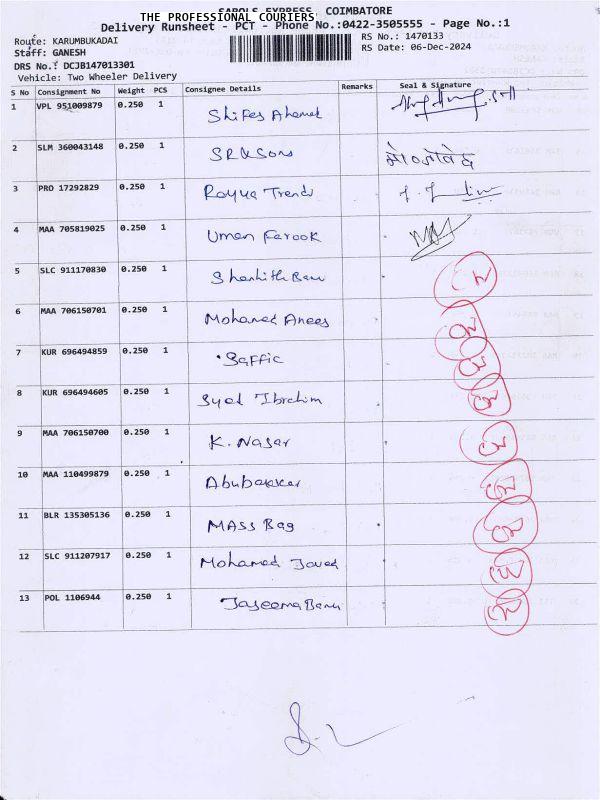 SAROLS EXPRESS, COIMBATORE
THE PROFESSIONAL COURIERS
Delivery Runsheet - PCT - Phone No.:0422-3505555 - Page No.:1
Route: KARUMBUKADAI RS No.: 1470133
Staff: GANESH RS Date: 06-Dec-2024
DRS No.: DCJB147013301
Vehicle: Two Wheeler Delivery
S No Consignment No Weight PCS Consignee Details Remarks Seal & Signature
1 VPL 951009879 0.250 1 Shifas Ahamed
2 SLM 360043148 0.250 1 SRK Sons
3 PRO 17292829 0.250 1 Rayya Trends
4 MAA 705819025 0.250 1 Umar Farook
5 SLC 911170830 0.250 1 Shanhith Banu
6 MAA 706150701 0.250 1 Mohamed Anees
7 KUR 696494859 0.250 1 Saffic
8 KUR 696494605 0.250 1 Syed Ibrahim
9 MAA 706150700 0.250 1 K. Nasar
10 MAA 110499879 0.250 1 Abubakkar
11 BLR 135305136 0.250 1 MASS Bag
12 SLC 911207917 0.250 1 Mohamed Javed
13 POL 1106944 0.250 1 Jaseema Banu